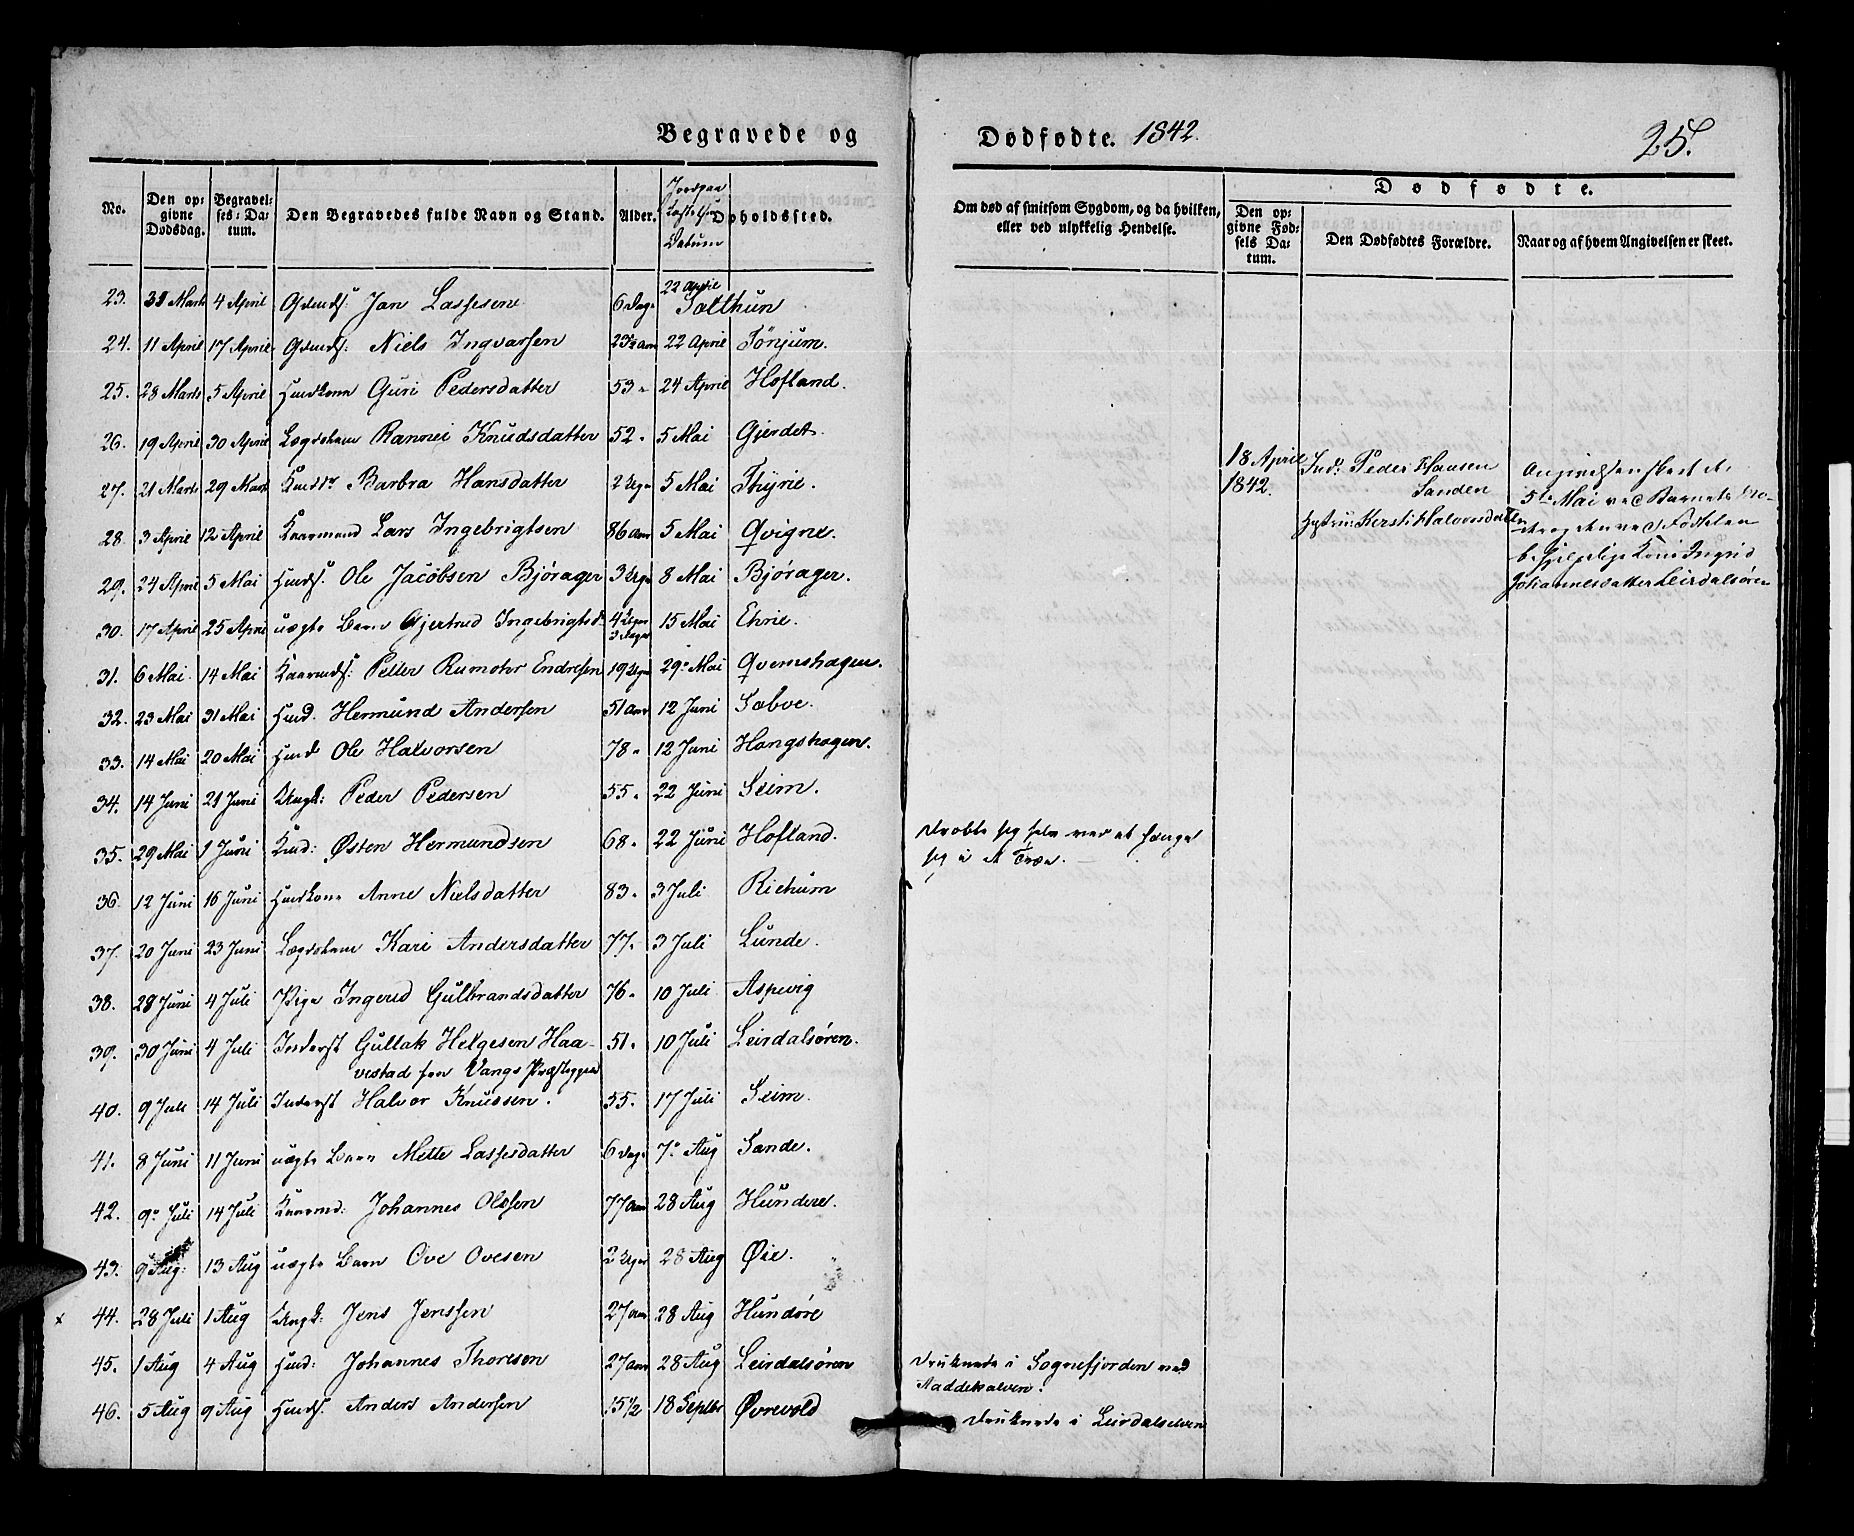 Begravede og Dødfødte. 1842. 25.
No. | Den opgivne Dødsdag. | Begravelses-Datum. | Den Begravedes fulde Navn og Stand. | Alder. | Jordpaakastelses Datum | Opholdssted. | Om død af smitsom Sygdom, og da hvilken, eller ved ulykkelig Hendelse. | Dødfødte. | Den opgivne Fødsels Datum. | Den Dødfødtes Forældre. | Naar og af hvem Angivelsen er skeet.
23. 31 Marts 4 April Gdmds: Jan Lassesen 6 Dage 22 April Sælthun
24. 11 April 17 April Gdmds: Niels Ingvarsen 23½ Aar 22 April Tønjum.
25. 28 Marts 5 April Huuskone Guri Pedersdatter 53 " 24 April Hofland.
26. 19 April 30 April Lægdslem Rannei Knudsdatter 52 " 5 Mai Gjerdet.
27. 21 Marts 29 Marts Barbra Hansdatter 2 Uger 5 Mai Thyrie.
28. 3 April 12 April Kaarmand Lars Ingebrigtsen 86 Aar 5 Mai Qvigne.
29. 24 April 5 Mai Huusds. Ole Jacobsen Bjørager 3 Uger 8 Mai Bjørager.
30. 17 April 25 April uægte Barn Gjertrud Ingebrigtsd. 4 Uger 3 Dage 15 Mai Ehrie.
31. 6 Mai 14 Mai Petter Rumohr Endresen 19 Uger 29 Mai Qvemshagen.
32. 23 Mai 31 Mai Hmd. Hermund Andersen 51 Aar 12 Juni Sæbøe.
33. 14 Mai 20 Mai Hmd Ole Halvorsen 78 " 12 Juni Hangshagen.
34. 14 Juni 21 Juni Ungk: Peder Pedersen 55 " 22 Juni Seim.
35. 29 Mai 1 Juni Østen Hermundsen 68 " 22 Juni Hofland. Dræbte sig selv ved at hænge
sig i et Træe.
36. 12 Juni 16 Juni Huuskone Anne Nielsdatter 83 " 3 Juli Richum
37. 20 Juni 23 Juni Lægdslem Kari Andersdatter 77 " 3 Juli Lunde.
38. 28 Juni 4 Juli Pige Ingerid Gulbrandsdatter 76 " 10 Juli Aspevig
39. 30 Juni 4 Juli Inderst Gullak Helgesen Haa- 51 " 10 Juli Leirdalsøren.
vestad fra Vangs Præstegjeld
40. 9 Juli 14 Juli Inderst Halvor Knudsen. 55. 17 Juli Seim.
41. 8 Juni 11 Juni uægte Barn Mette Lassesdatter 6 Dage 7 Aug Sande.
42. 9 Juli 14 Juli Kaarmd: Johannes Olssen 77 Aar 28 Aug Hundere.
43. 9 Aug: 13 Aug uægte Barn Ove Ovesen 2 Uger 28 Aug Øie.
x 44. 28 Juli 1 Aug Ungk: Jens Jenssen 27 Aar 28 Aug Hundøre
45. 1 Aug 4 Aug Hmd: Johannes Thoresen 27 Aar 28 Aug Leirdalsøren Druknede i Sognefjorden ved
Raddekalven.
46. 5 Aug 9 Aug Huusds. Anders Andersen 15½ 18 Septbr Øvrevold Druknede i Leirdalselven
18 April
1842.
Ind: Peder Hansen
Sanden
Hustru: Kersti Halvorsdatter
Angivelsen skeet d.
5te Mai ved Barnets Mo-
der og den ved Fødselen
behjelpelige Kone Ingrid
Johannesdatter Leirdalsøren